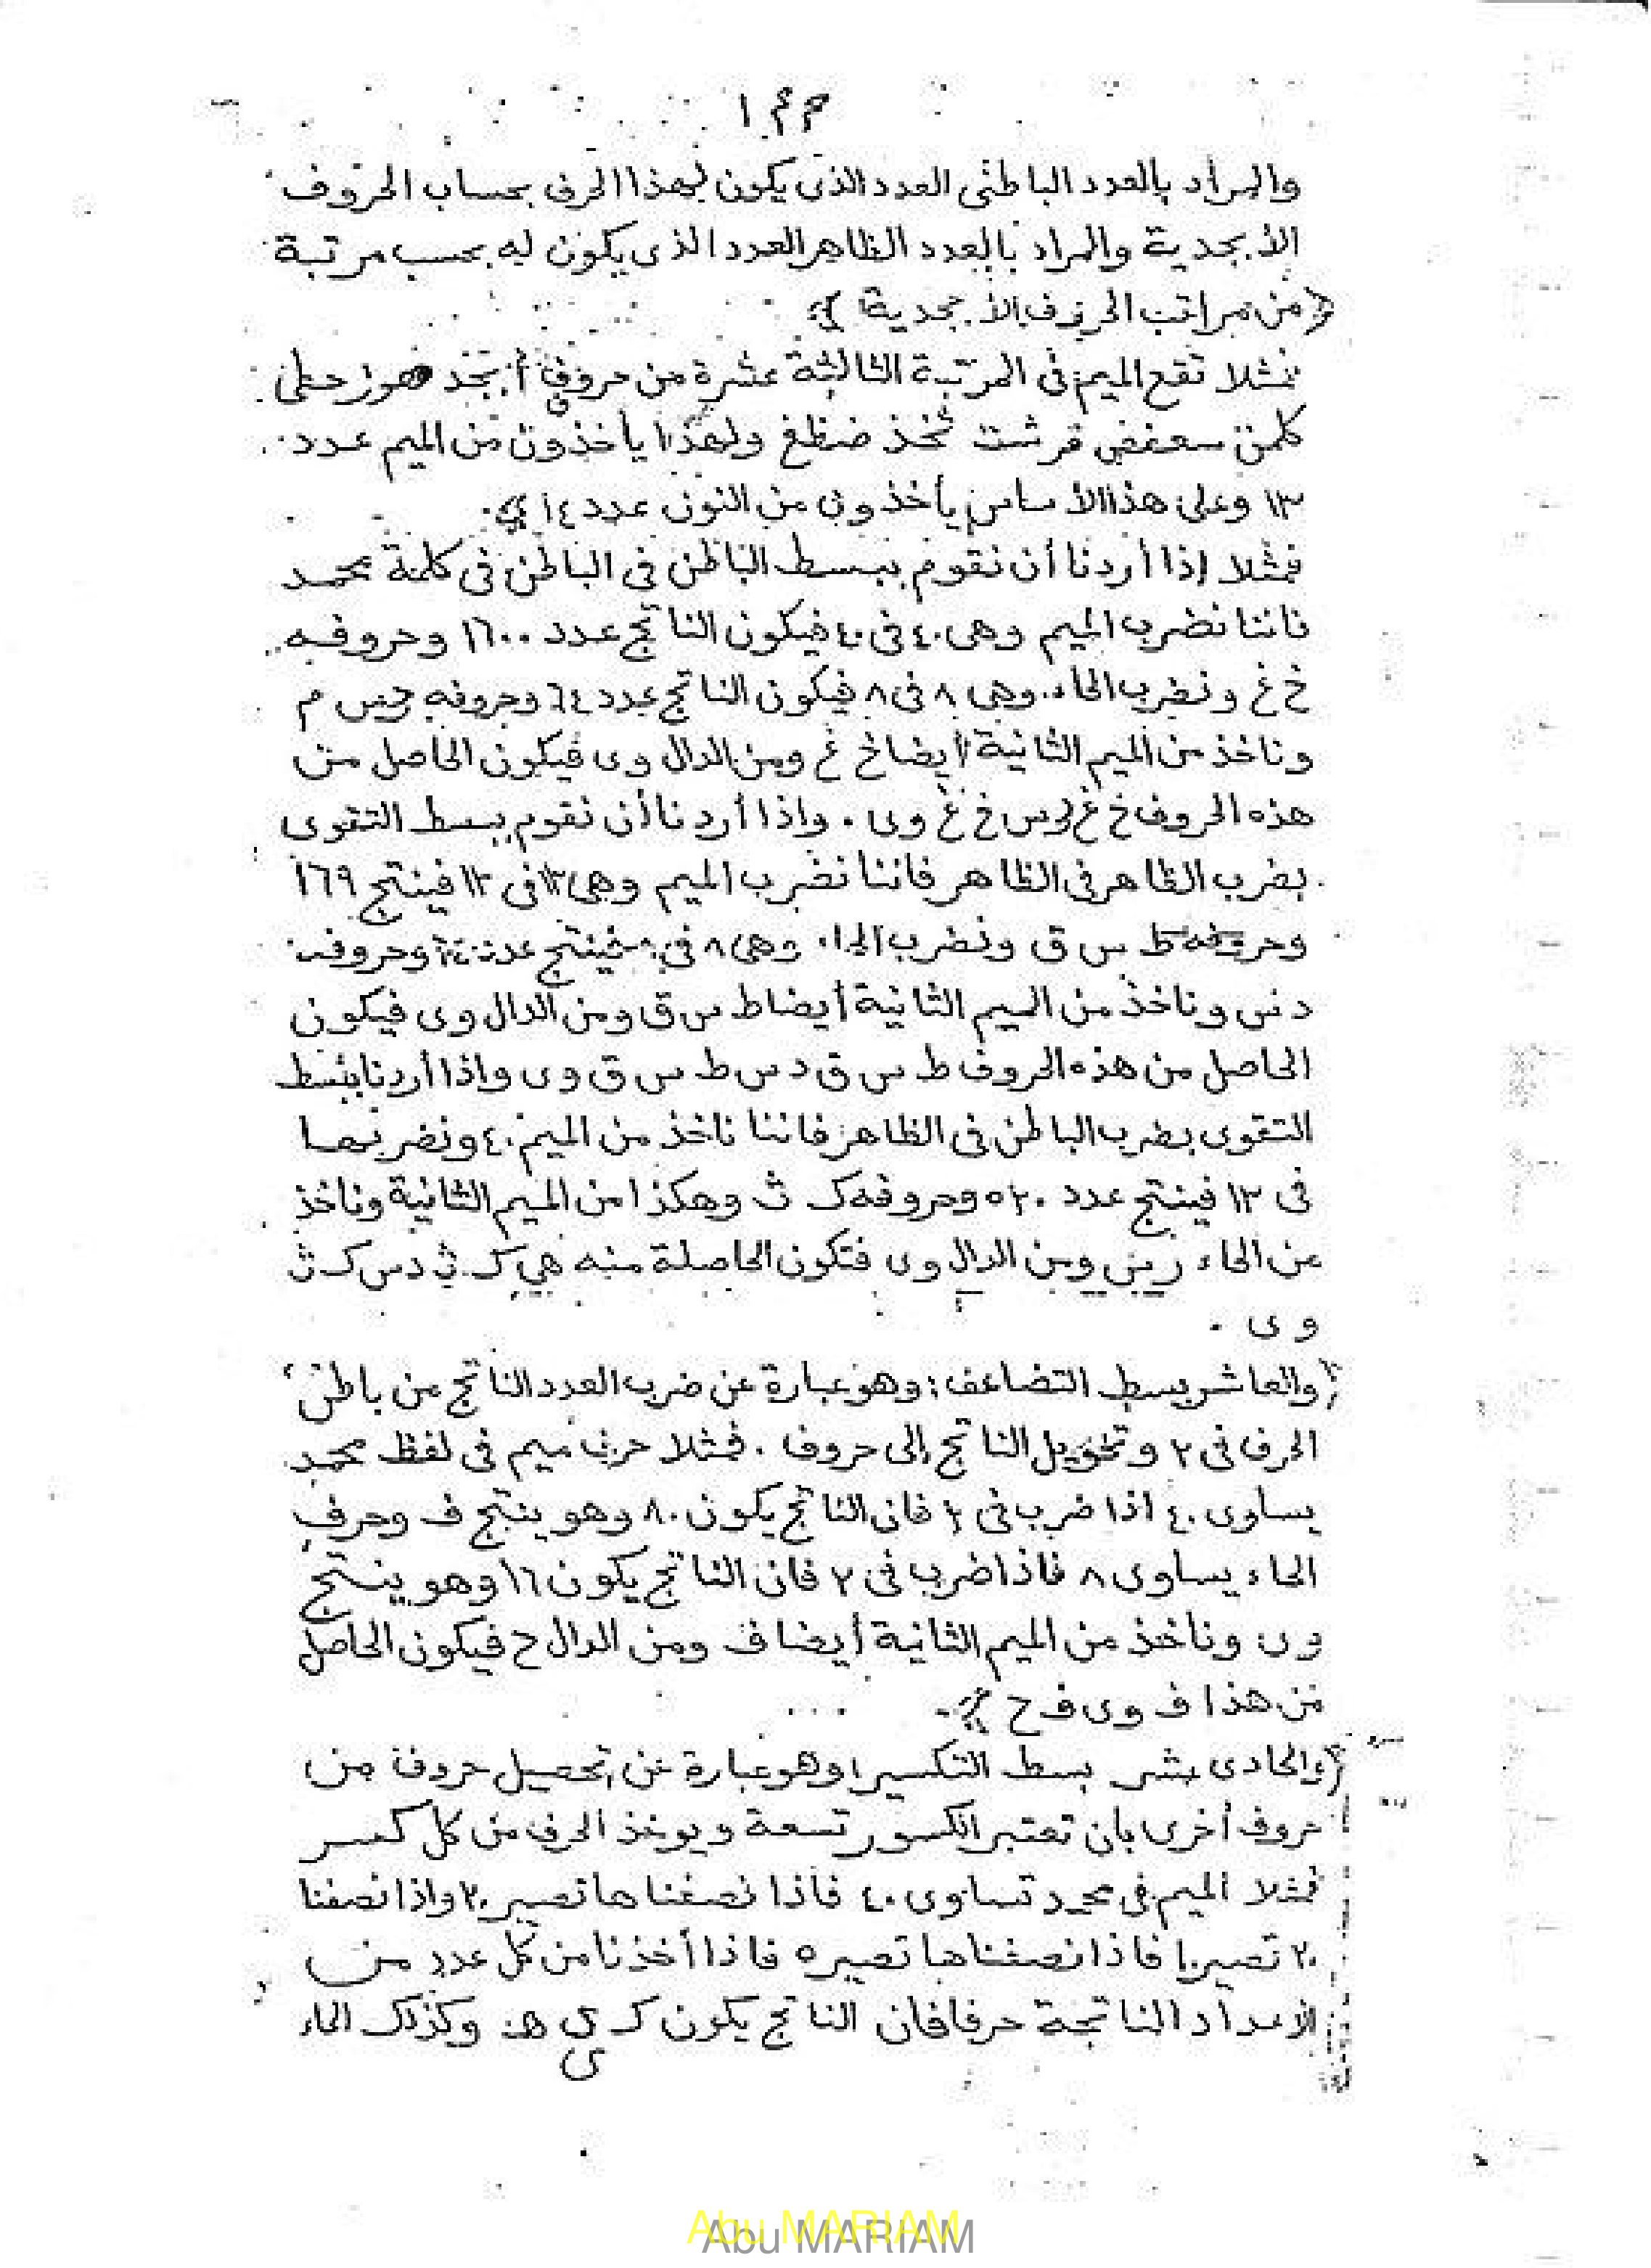 والمراد بالعدد الباطنى العدد الذى يكون لهذا الحرف بحساب الحروف
الأبجدية والمراد بالعدد الظاهر العدد الذى يكون له بحسب مرتبة
من مراتب الحروف الأبجدية
فمثلا تقع الميم فى المرتبة الثالثة عشرة من حروف أبجد هوز حطى
كلمن سعفص قرشت ثخذ ضظغ ولهذا يأخذون من الميم عدد
١٣ وعلى هذا الأساس يأخذون من النون عدد ١٤
فمثلا إذا أردنا أن نقوم ببسط الباطن فى الباطن فى كلمة محمد
فاننا نضرب الميم وهى ٤٠ فى ٤٠ فيكون الناتج عدد ١٦٠٠ وحروفه
خ غ ونضرب الحاء وهى ٨ فى ٨ فيكون الناتج عدد ٦٤ وحروفه س م
وناخذ من الميم الثانية أيضا خ غ ومن الدال وى فيكون الحاصل من
هذه الحروف خ غ س خ غ وى . واذا أردنا أن نقوم ببسط التقوى
بضرب الظاهر فى الظاهر فاننا نضرب الميم وهى ١٣ فى ١٣ فينتج ١٦٩
وحروفه ط س ق ونضرب الحاء وهى ٨ فى ٨ فينتج عدد ٦٤ وحروفه
د س وناخذ من الميم الثانية أيضا ط س ق ومن الدال وى فيكون
الحاصل من هذه الحروف ط س ق د س ط س ق وى واذا أردنا ببسط
التقوى بضرب الباطن فى الظاهر فاننا ناخذ من الميم ٤٠ ونضربها
فى ١٣ فينتج عدد ٥٢٠ وحروفه ك ث وهكذا من الميم الثانية وناخذ
من الحاء د س ومن الدال وى فتكون الحاصلة منه هى ك ث د س ك ث
وى .
والعاشر بسط التضاعف : وهو عبارة عن ضرب العدد الناتج من باطن
الحرف فى ٢ وتحويل الناتج إلى حروف . فمثلا حرف ميم فى لفظ محمد
يساوى ٤٠ اذا ضرب فى ٢ فان الناتج يكون ٨٠ وهو ينتج ف وحرف
الحاء يساوى ٨ فاذا ضرب فى ٢ فان الناتج يكون ١٦ وهو ينتج
وى وناخذ من الميم الثانية أيضا ف ومن الدال ح فيكون الحاصل
من هذا ف وى ف ح
والحادى عشر بسط التكسير وهو عبارة عن تحصيل حروف من
حروف أخرى بان تعتبر الكسور تسعة ويوخذ الحرف من كل كسر
فمثلا الميم فى محمد تساوى ٤٠ فاذا نصفناها تصير ٢٠ واذا نصفنا
٢٠ تصير ١٠ فاذا نصفناها تصير ٥ فاذا أخذنا من كل عدد من
الاعداد الناتجة حرفا فان الناتج يكون ك ى هـ وكذلك الحاء
ى
Abu MARIAM
Abu MARIAM